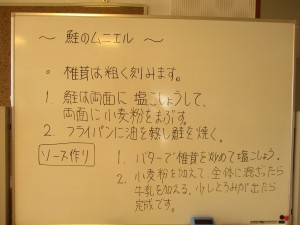 ～ 鮭のムニエル ～
○ 椎茸は粗く刻みます。
1. 鮭は両面に塩こしょうして、
両面に小麦粉をまぶす。
2. フライパンに油を熱し鮭を焼く。
ソース作り
1. バターで椎茸を炒めて塩こしょう。
2. 小麦粉を加えて、全体に混ざったら
牛乳を加える。少しとろみが出たら
完成です。